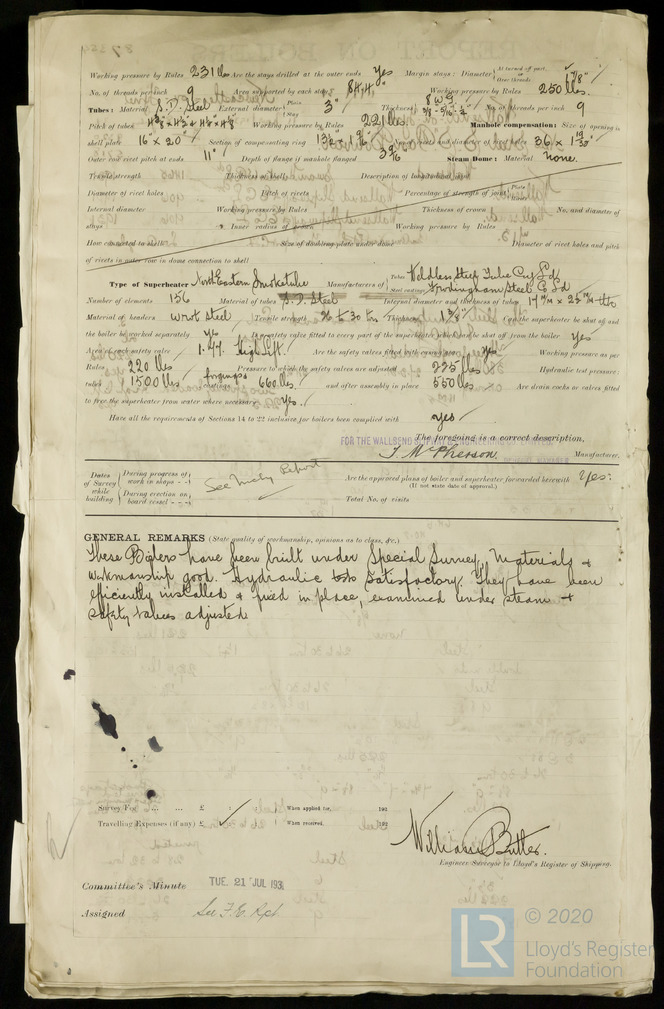 Working pressure by Rules 231 lbs Are the stays drilled at the outer ends yes Margin stays: Diameter {At turned off part, or Over threads 1 7/8"
No. of threads per inch 9 Area supported by each stay 84.4 Working pressure by Rules 250 lbs.
Tubes: Material S.D. Steel External diameter {Plain Stay 3" Thickness {8 W.G. No. of threads per inch 9
Pitch of tubes Working pressure by Rules 221 lbs. Manhole compensation: Size of opening in
shell plate 16" x 20" Section of compensating ring No. of rivets and diameter of rivet holes 36 x
Outer row rivet pitch at ends 11" Depth of flange if manhole flanged Steam Dome: Material none.
Tensile strength Thickness of shell Description of longitudinal joint
Diameter of rivet holes Pitch of rivets Percentage of strength of joint {Plate Rivets
Internal diameter Working pressure by Rules Thickness of crown No. and diameter of
stays Inner radius of crown Working pressure by Rules
How connected to shell Size of doubling plate under dome Diameter of rivet holes and pitch
of rivets in outer row in dome connection to shell
Type of Superheater North Eastern Smoketube Manufacturers of {Tubes Weldless Steel Tube Coy Ld
Steel castings Frodingham Steel C. Ld
Number of elements 156 Material of tubes S.D. Steel Internal diameter and thickness of tubes 17 m/m x
Material of headers wrot steel Tensile strength 26 to 30 tns Thickness Can the superheater be shut off and
the boiler be worked separately yes Is a safety valve fitted to every part of the superheater which can be shut off from the boiler yes
Area of each safety valve 1.47. High Lift. Are the safety valves fitted with easing gear yes Working pressure as per
Rules 220 lbs Pressure to which the safety valves are adjusted 225 lbs Hydraulic test pressure:
tubes 1500 lbs forgings castings 660 lbs. and after assembly in place 550 lbs Are drain cocks or valves fitted
to free the superheater from water where necessary yes.
Have all the requirements of Sections 14 to 22 inclusive for boilers been complied with yes
FOR THE WALLSEND
The foregoing is a correct description,
J. McPherson Manufacturer.
Dates of Survey while building {During progress of work in shops - - {During erection on board vessel - - - See Machy Report Are the approved plans of boiler and superheater forwarded herewith Yes.
(If not state date of approval.)
Total No. of visits
GENERAL REMARKS (State quality of workmanship, opinions as to class, &c.)
These Boilers have been built under Special Survey, Materials &
workmanship good. Hydraulic tests satisfactory. They have been
efficiently installed & fixed in place, examined under steam &
safety valves adjusted
Survey Fee ... ... £ : : When applied for, 193
Travelling Expenses (if any) £ : : When received, 193
William Butler.
Engineer Surveyor to Lloyd's Register of Shipping.
Committee's Minute TUE. 21 JUL 193
Assigned See F.E. Rpt.
LR © 2020
Lloyd's Register
Foundation